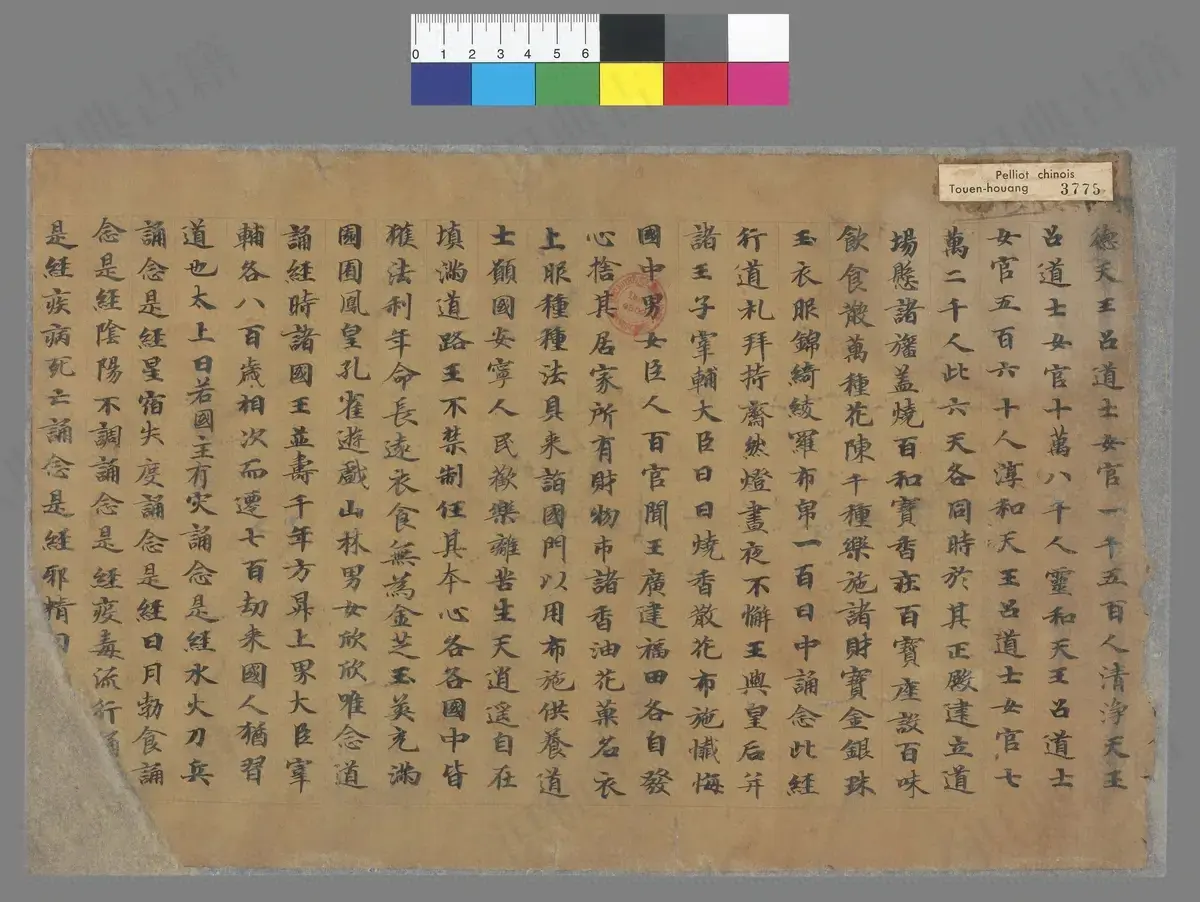 0 1 2 3 4 5 6
Pelliot chinois
Touen-houang 3775
德天王吕道士女官一千五百人清淨天王
吕道士女官十萬八千人靈和天王吕道士
女官五百六十人淳和天王吕道士女官七
萬二千人此六天各同時於其正殿建立道
場懸諸旛盖燒百和寶香莊百寶座設百味
飲食散萬種花陳千種樂施諸財寶金銀珠
玉衣服錦綺綾羅布帛一百日中誦念此經
行道礼拜持齋然燈晝夜不懈王與皇后并
諸王子宰輔大臣日日燒香散花布施懺悔
國中男女臣人百官聞王廣建福田各自發
心捨其居家所有財物市諸香油花菓名衣
上服種種法具来詣國門以用布施供養道
士願國安寧人民歡樂離苦生天逍遥自在
填滿道路王不禁制任其本心各各國中皆
獲法利年命長遠衣食無為金芝玉英充滿
園囿鳳皇孔雀遊戲山林男女欣欣唯念道
誦經時諸國王並壽千年方昇上界大臣宰
輔各八百歲相次而遷七百劫来國人猶習
道也太上曰若國主有灾誦念是經水火刀兵
誦念是經星宿失度誦念是經日月勃食誦
念是經陰陽不調誦念是經疫毒流行誦
是經疾病死亡誦念是經邪精